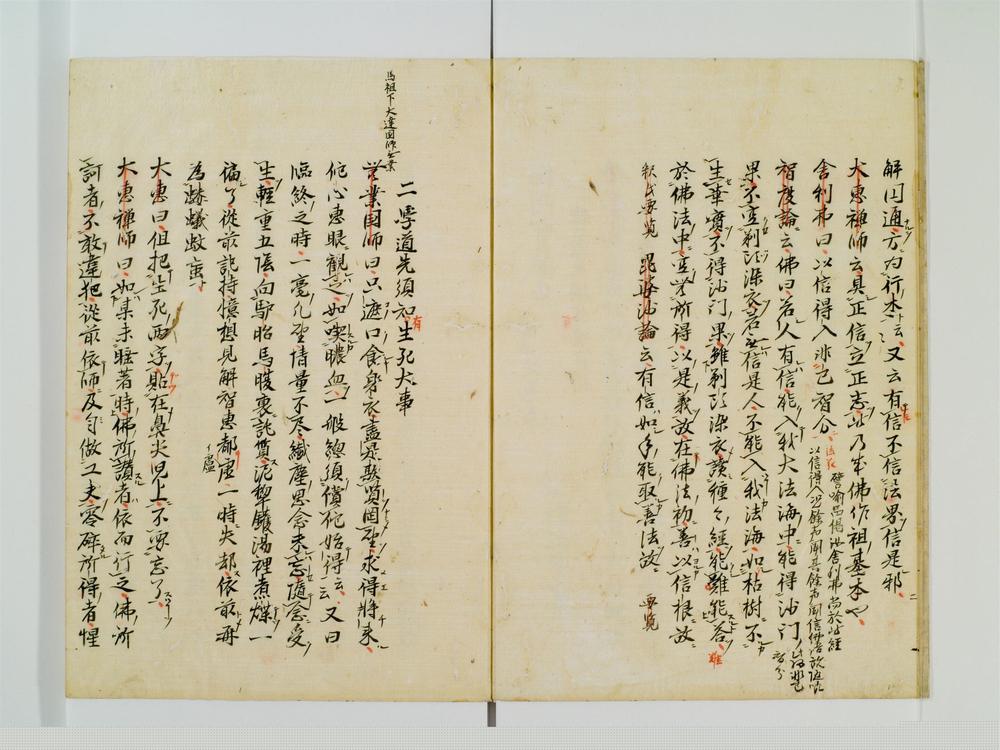 解円通方为行本云又云有信不信法界信是邪
大惠禅师云具正信立正志此乃成佛作祖基本也
舍利弗曰以信得入非己智分
譬喻品偈汝舍利弗尚於此経
以信得入况餘声聞其餘声聞信佛語故随順
此経非己智分
智度論云佛曰若人有信能入我大法海中能得沙门
果不空剃頭染衣若无信是人不能入我法海如枯樹不
生華實不得沙门果雖剃頭染衣讀種々経能難能答
於佛法中空无所得以是義故在佛法初善以信根故
釈氏要覧 毘婆沙論云有信如手能取善法故 要覧
二學道先須知有生死大事
馬祖下大達国师无業
无業国师曰只遮口食身衣盡是欺賢罔聖求得将来
他心惠眼觀之如喫膿血一般緫須償他始得云云又曰
臨終之時一毫凡聖情量不尽纎塵思念未忘随念受
生輕重五陰向驢胎馬腹裏託質泥犁鑊湯裡煮煠一
徧了從前記持憶想見解智惠都盧一時失却依前再
為螻蟻蚊虻
大惠曰但把生死两字貼在鼻尖児上不要忘了
大惠禅师曰如某未睡著時佛所讃者依而行之佛所
訶者不敢違犯從前依师及自做工夫零碎所得者惺